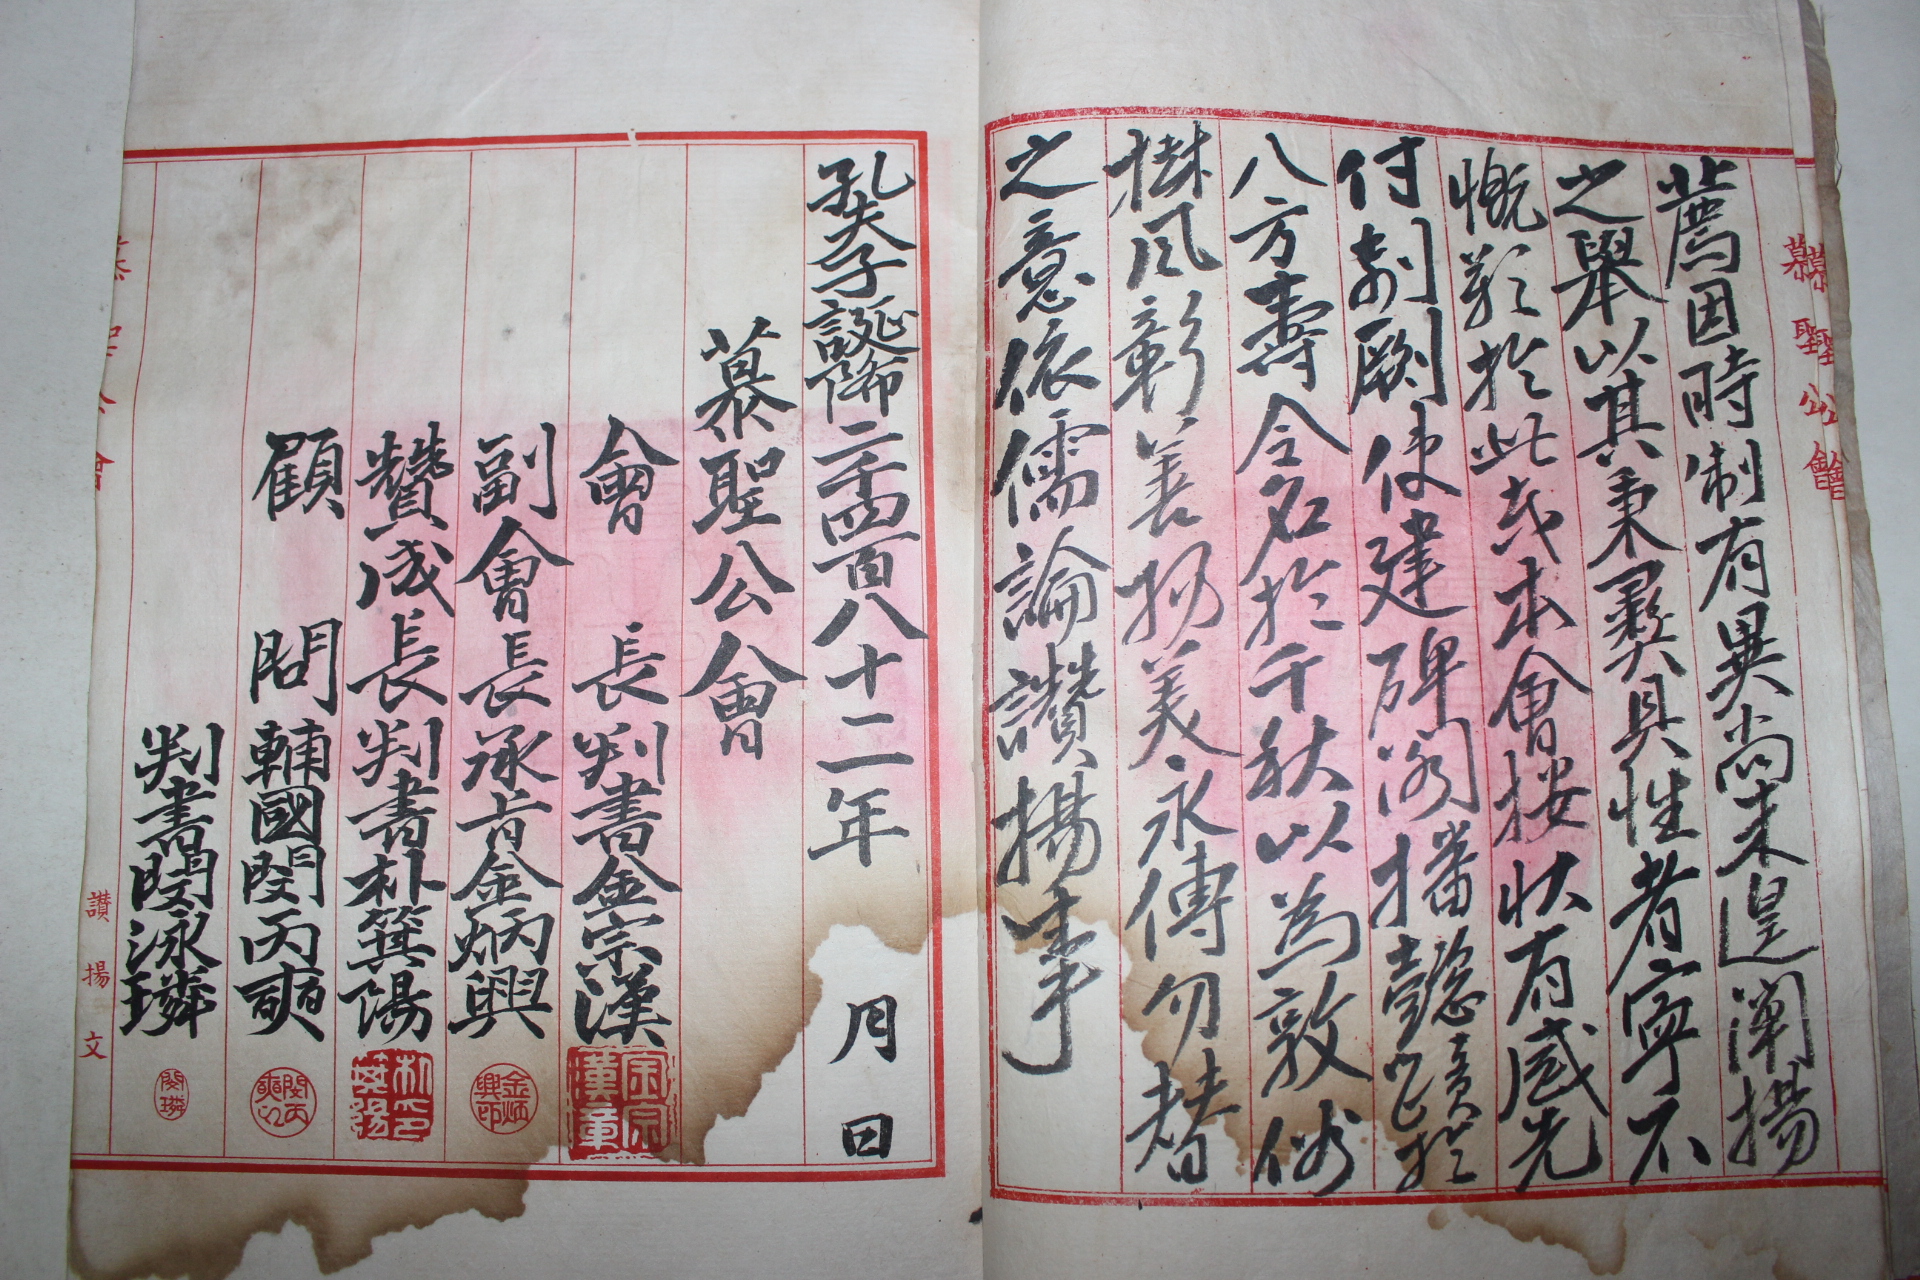 慕聖公會
薦因時制有異尚未遑闡揚
之舉以其秉彛具性者寧不
慨歎於此哉本會按狀有感先
付剞劂使建碑閣播懿蹟於
八方壽令名於千秋以為敦俗
樹風彰善揚美永傳勿替
之意依儒論讚揚事
孔夫子誕降二千四百八十二年 月 日
慕聖公會
會 長 判書金宗漢
副會長 承旨金炳興
贊成長 判書朴箕陽
顧 問 輔國閔丙奭
判書閔泳璘
讃揚文